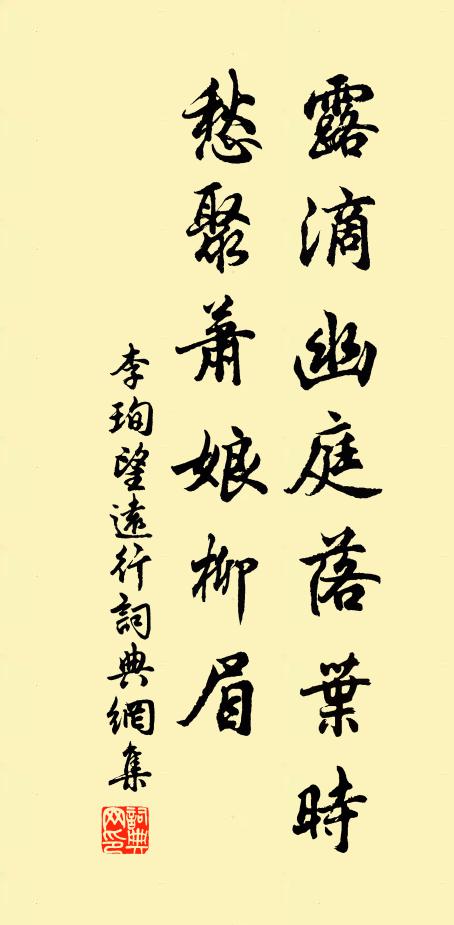 露滴幽庭落葉時
愁聚蕭娘柳眉
李珣望遠行詞典網集
詞典網印